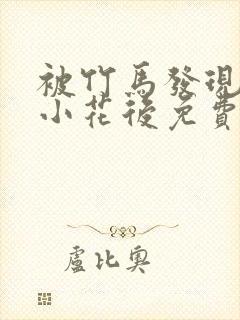 被竹馬發現
小花後免費
盧比奧